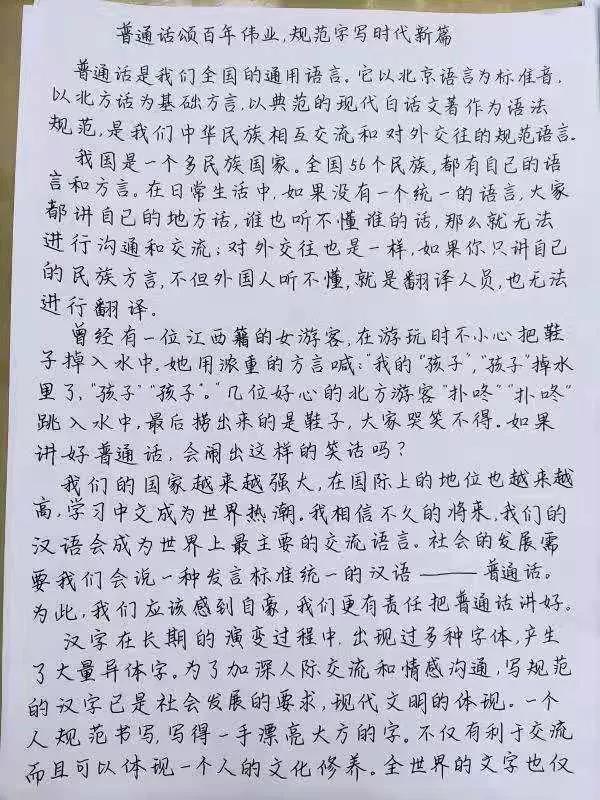 普通话颂百年伟业,规范字写时代新篇
普通话是我们全国的通用语言。它以北京语言为标准音,
以北方话为基础方言,以典范的现代白话文著作为语法
规范,是我们中华民族相互交流和对外交往的规范语言。
我国是一个多民族国家。全国56个民族,都有自己的语
言和方言。在日常生活中,如果没有一个统一的语言,大家
都讲自己的地方话,谁也听不懂谁的话,那么就无法
进行沟通和交流;对外交往也是一样,如果你只讲自己
的民族方言,不但外国人听不懂,就是翻译人员,也无法
进行翻译。
曾经有一位江西籍的女游客,在游玩时不小心把鞋
子掉入水中。她用浓重的方言喊:“我的“孩子”,“孩子”掉水
里了,“孩子”“孩子”。”几位好心的北方游客“扑咚”“扑咚”
跳入水中,最后捞出来的是鞋子,大家哭笑不得。如果
讲好普通话,会闹出这样的笑话吗?
我们的国家越来越强大,在国际上的地位也越来越
高,学习中文成为世界热潮。我相信不久的将来,我们的
汉语会成为世界上最主要的交流语言。社会的发展需
要我们会说一种发言标准统一的汉语——普通话。
为此,我们应该感到自豪,我们更有责任把普通话讲好。
汉字在长期的演变过程中,出现过多种字体,产生
了大量异体字。为了加深人际交流和情感沟通,写规范
的汉字已是社会发展的要求,现代文明的体现。一个
人规范书写,写得一手漂亮大方的字。不仅有利于交流
而且可以体现一个人的文化修养。全世界的文字也仅